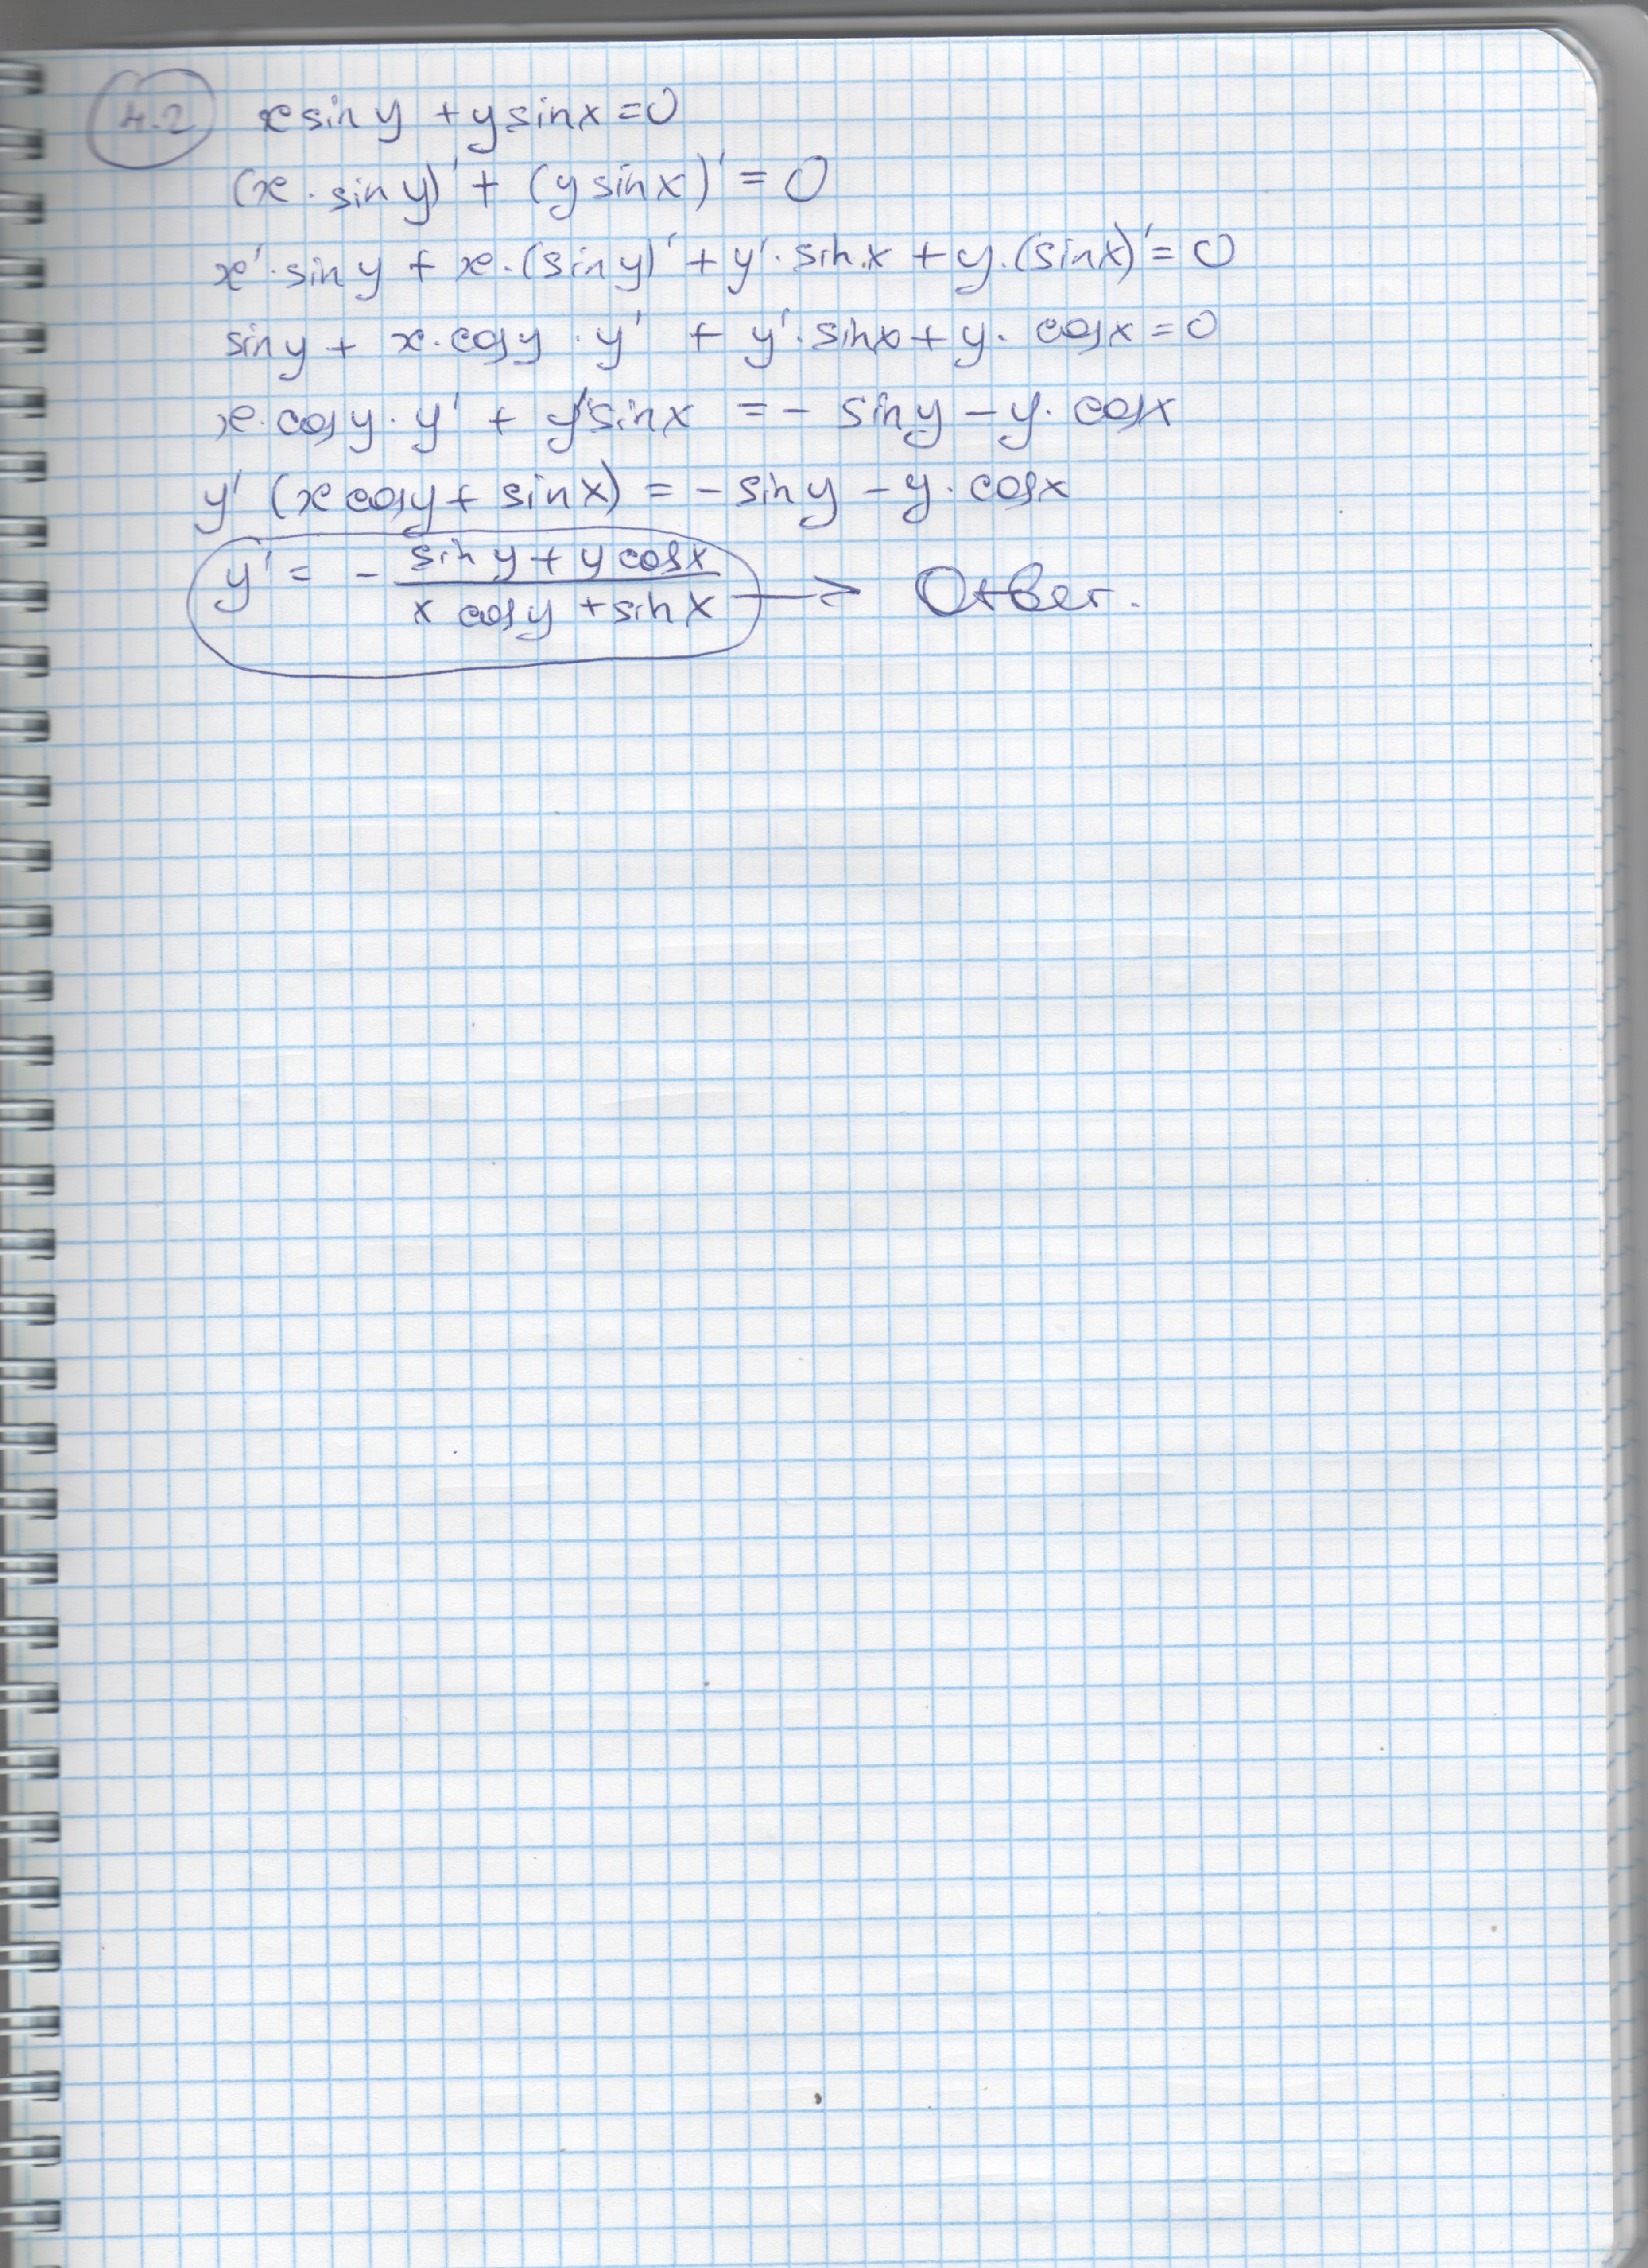 4.2 x sin y + y sin x = 0
(x · sin y)' + (y sin x)' = 0
x' · sin y + x · (sin y)' + y' · sin x + y · (sin x)' = 0
sin y + x · cos y · y' + y' · sin x + y · cos x = 0
x · cos y · y' + y' sin x = - sin y - y · cos x
y' (x cos y + sin x) = - sin y - y · cos x
y' = - \frac{sin y + y cos x}{x cos y + sin x} → Ответ.